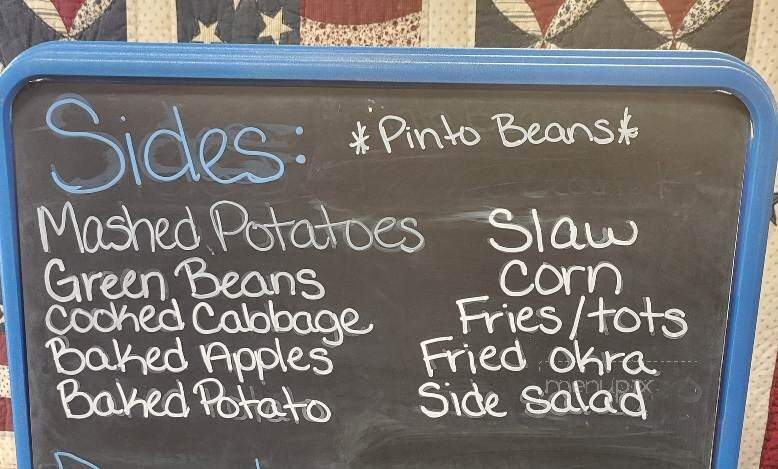 Sides: *Pinto Beans*
Mashed Potatoes Slaw
Green Beans Corn
cooked Cabbage Fries/tots
Baked Apples Fried okra
Baked Potato Side salad
menupix